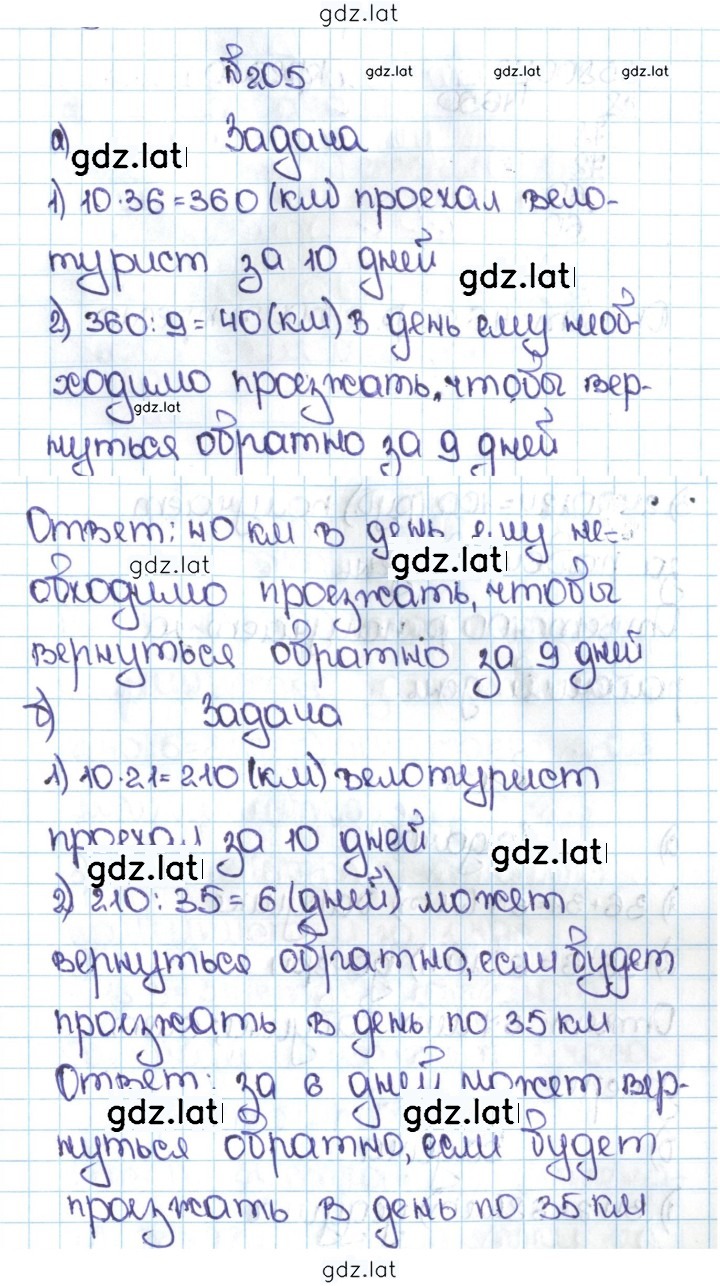 gdz.lat
№205 gdz.lat gdz.lat gdz.lat
а) gdz.lat Задача
1) 10·36=360(км) проехал вело-
турист за 10 дней
gdz.lat
2) 360:9=40(км) в день ему необ-
ходимо проезжать, чтобы вер-
gdz.lat
нуться обратно за 9 дней
Ответ: 40 км в день ему не-
gdz.lat gdz.lat
обходимо проезжать, чтобы
вернуться обратно за 9 дней
б) Задача
1) 10·21=210(км) велотурист
проехал за 10 дней
gdz.lat gdz.lat
2) 210:35=6(дней) может
вернуться обратно, если будет
проезжать в день по 35 км
Ответ: за 6 дней может вер-
gdz.lat gdz.lat
нуться обратно, если будет
проезжать в день по 35 км
gdz.lat